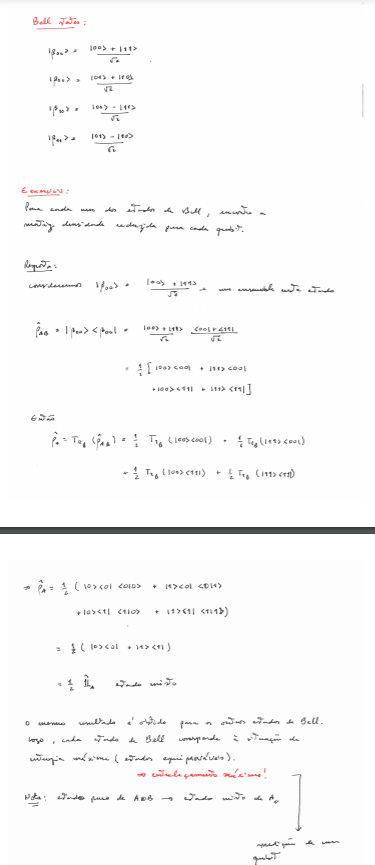 Bell states:
|β₀₀> = |00> + |11> / √2
|β₀₁> = |01> + |10> / √2
|β₁₀> = |00> - |11> / √2
|β₁₁> = |01> - |10> / √2
Exemplo:
Para cada um dos estados de Bell, encontre a
matriz densidade reduzida para cada qubit.
Resposta:
consideremos |β₀₀> = |00> + |11> / √2 e um ensemble neste estado
ρ̂_AB = |β₀₀><β₀₀| = |00> + |11> / √2 <00| + <11| / √2
= 1/2 [ |00><00| + |11><00|
+ |00><11| + |11><11| ]
Então
ρ̂_A = Tr_B (ρ̂_AB) = 1/2 Tr_B (|00><00|) + 1/2 Tr_B (|11><00|)
+ 1/2 Tr_B (|00><11|) + 1/2 Tr_B (|11><11|)
⇒ ρ̂_A = 1/2 ( |0><0| <0|0> + |1><0| <0|1>
+ |0><1| <1|0> + |1><1| <1|1>)
= 1/2 ( |0><0| + |1><1| )
= 1/2 𝟙̂_A estado misto
O mesmo resultado é obtido para os outros estados de Bell.
Logo, cada estado de Bell corresponde à situação de
entropia máxima (estados equiprováveis).
⇒ entrelaçamento máximo!
Nota: estado puro de A⊗B → estado misto de A
medição de um
qubit